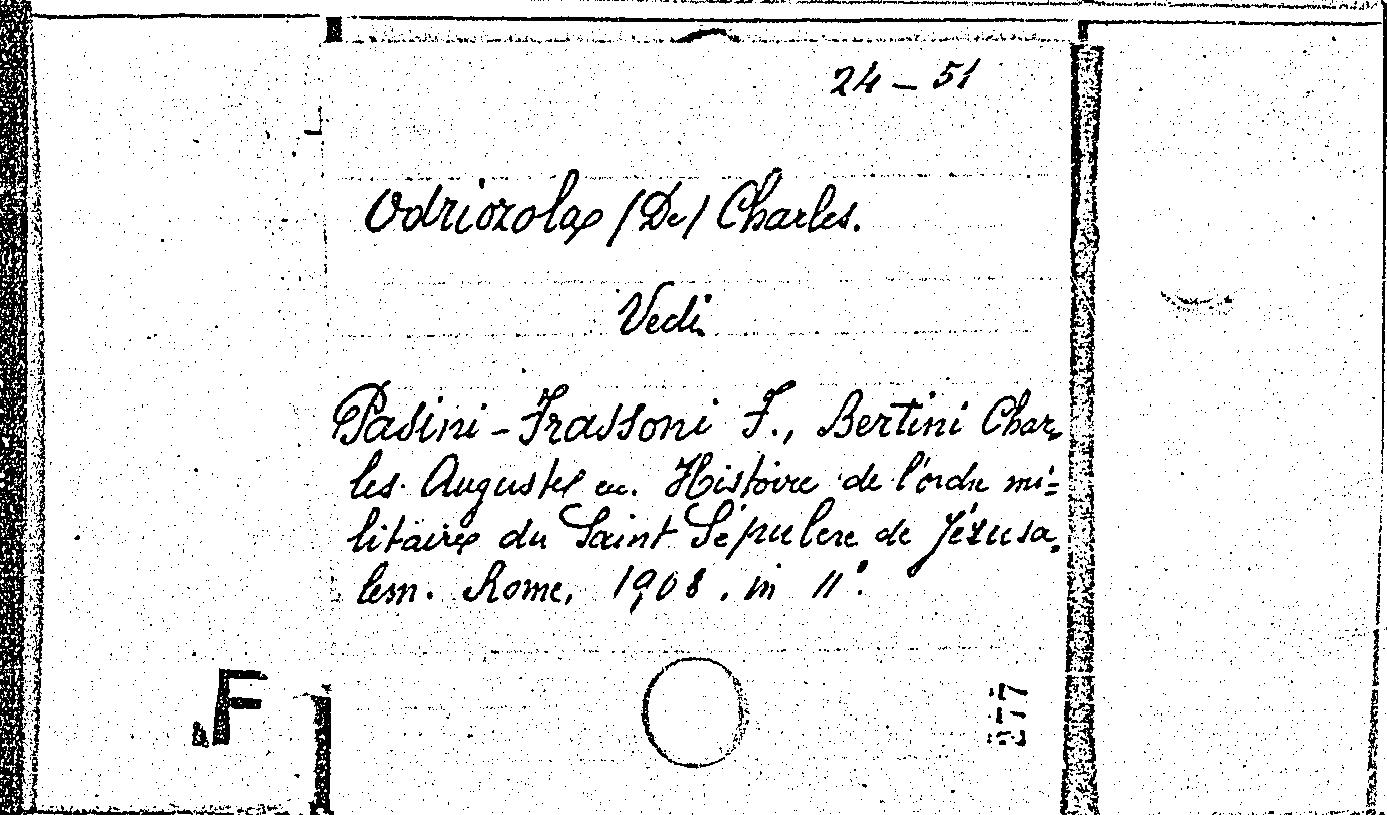 24 - 51
Odriozola (De) Charles.
Vedi
Pasini-Frassoni F., Bertini Char
les Auguste ec. Histoire de l'ordre mi=
litaire du Saint Sépulcre de Jérusa
lem. Rome, 1908. in 11°.
F
277